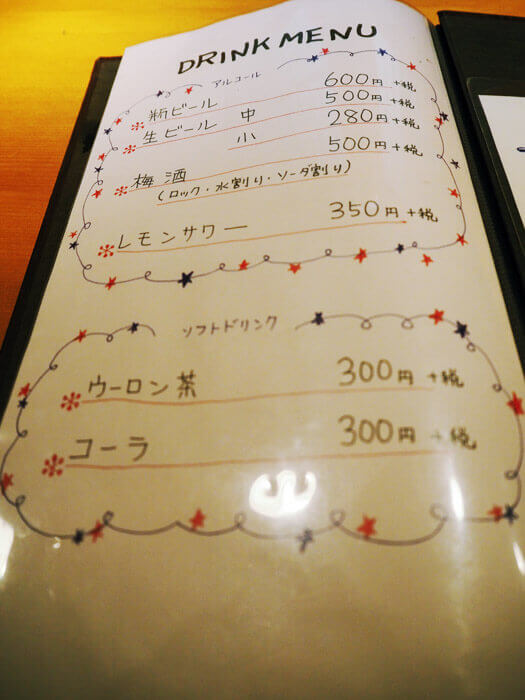 DRINK MENU
アルコール
瓶ビール 600円+税
生ビール 中 500円+税
小 280円+税
梅酒 500円+税
(ロック・水割り・ソーダ割り)
レモンサワー 350円+税
ソフトドリンク
ウーロン茶 300円+税
コーラ 300円+税